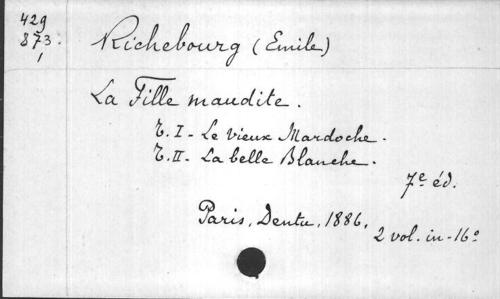 429
873.
1
Richebourg (Emile)
La Fille maudite.
T. I - Le vieux Mardoche.
T. II - La belle Blanche.
7e éd.
Paris, Dentu, 1886.
2 vol. in-16o